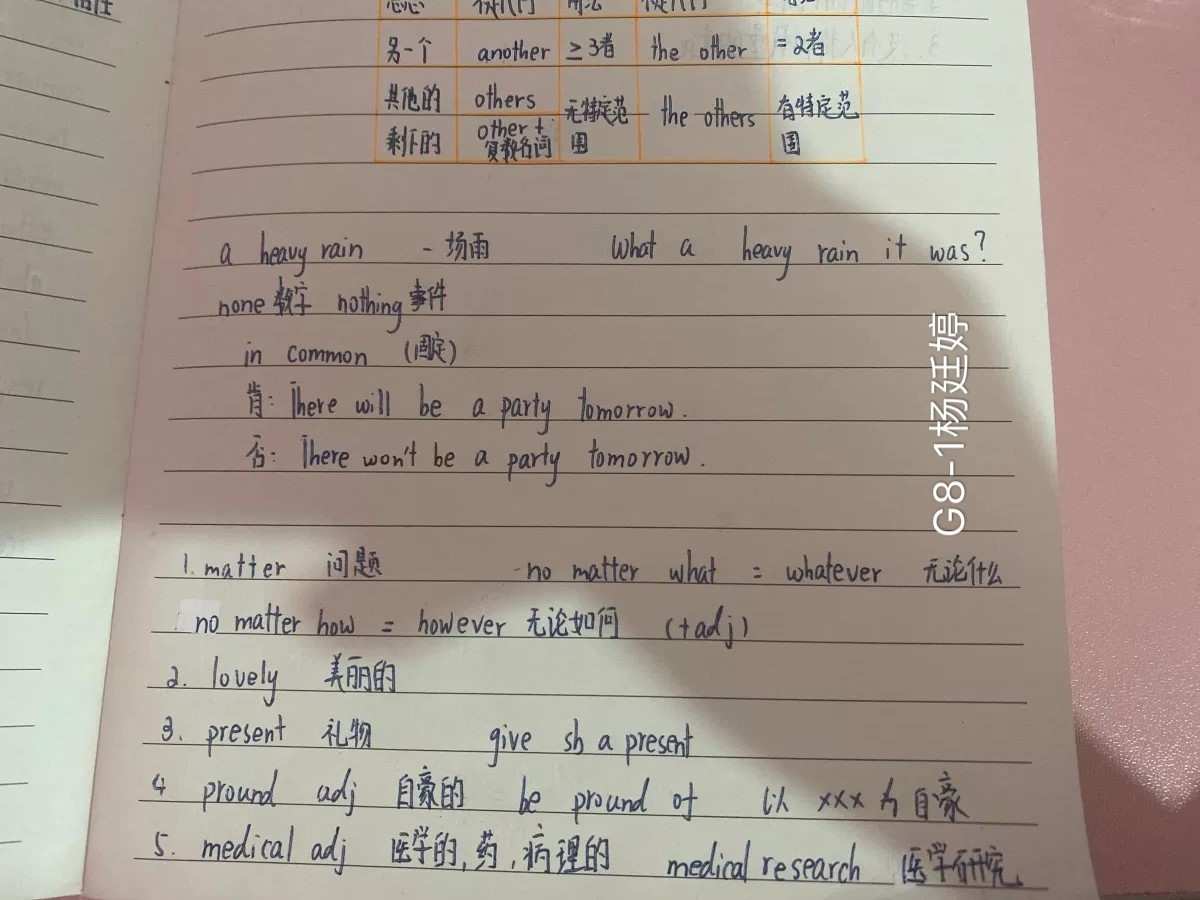 另一个 another ≥3者 the other =2者
其他的 others 无特定范围 the others 有特定范围
剩下的 other + 复数名词
a heavy rain 一场雨 What a heavy rain it was?
none数字 nothing事件
in common (固定)
肯: There will be a party tomorrow.
否: There won't be a party tomorrow.
G8-1杨廷婷
1. matter 问题 -no matter what = whatever 无论什么
no matter how = however 无论如何 (+adj)
2. lovely 美丽的
3. present 礼物 give sb a present
4 pround adj 自豪的 be pround of 以xxx为自豪
5. medical adj 医学的,药,病理的 medical research 医学研究